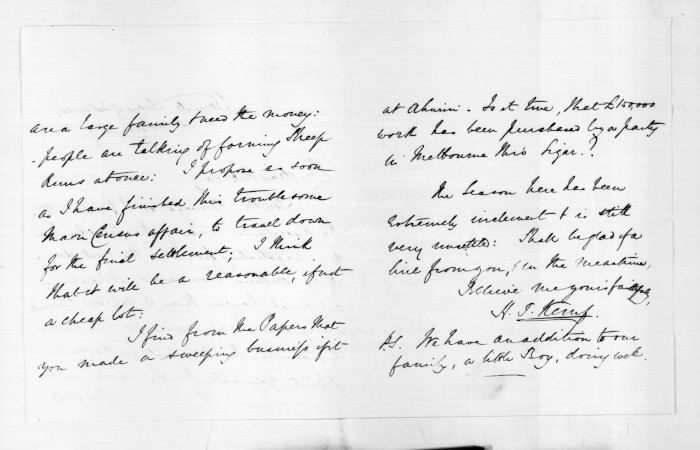 are a large family & need the money:
- people are talking of forming Sheep
Runs at once: I propose as soon
as I have finished this troublesome
Maori Census affair, to travel down
for the final settlement; I think
that it will be a reasonable, if not
a cheap lot:
I find from the Papers that
you made a sweeping business of it
at Ahuriri. Is it true, that £150,000
worth has been purchased by a party
in Melbourne thro' Ligar?
The Season here has been
extremely inclement & is still
very unsettled: Shall be glad of a
line from you, & in the meantime,
Believe me yours faithfully,
H. T. Kemp.
P.S. We have an addition to our
family, a little Boy, doing well.